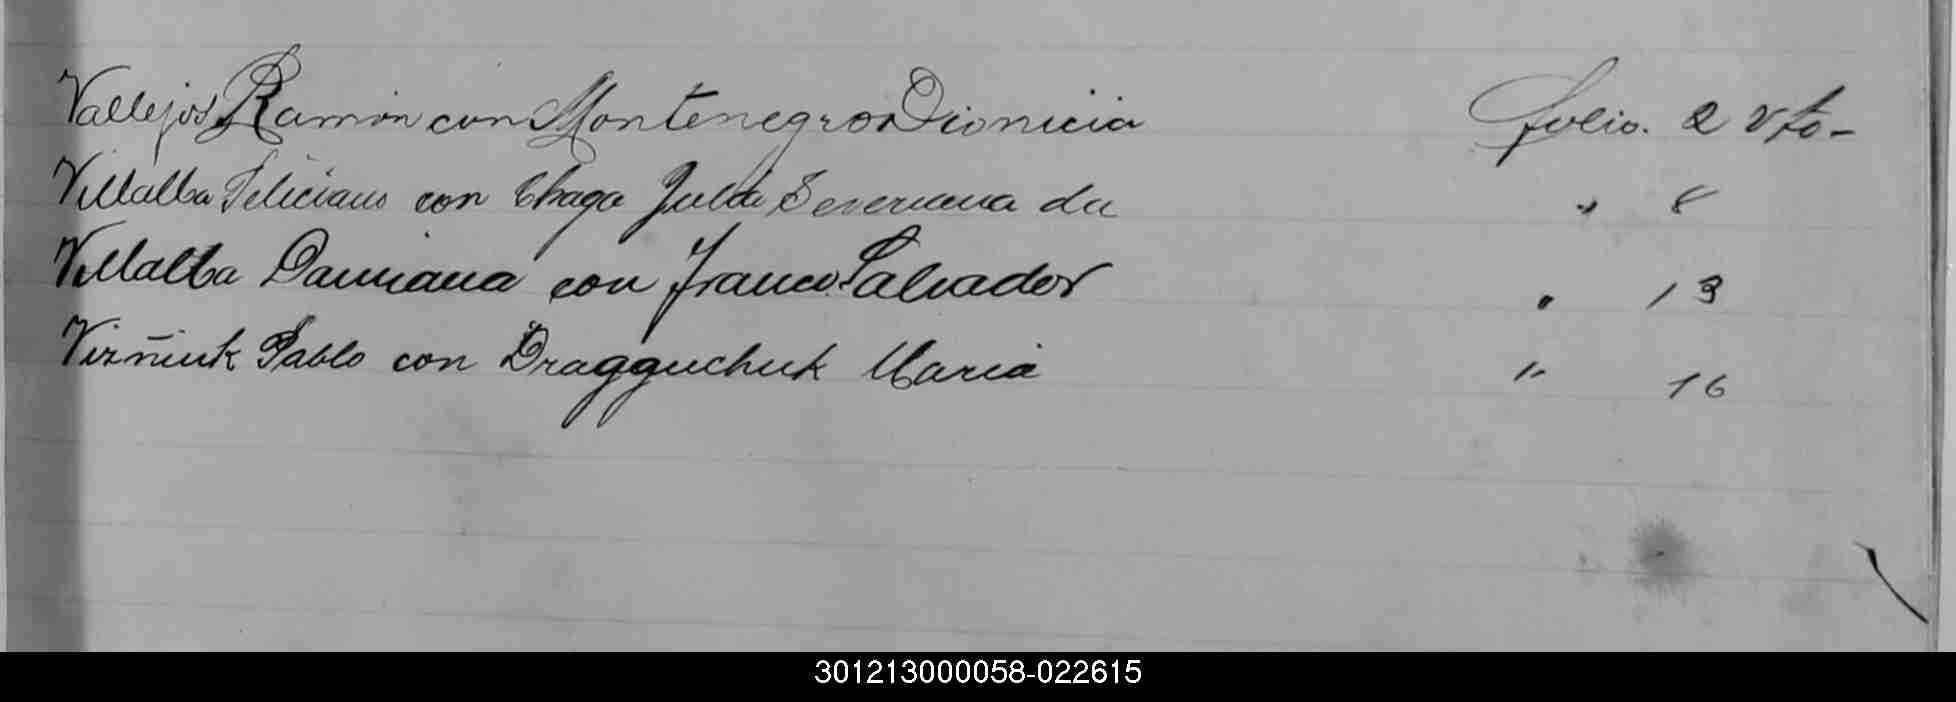 Vallejos Ramón con Montenegro Dionicia folio. 2 vto-
Villalba Feliciano con Chaga Julia Severiana da " 8
Villalba Damiana con Franco Salvador " 13
Virñiuk Pablo con Dragguchuk Maria " 16
301213000058-022615